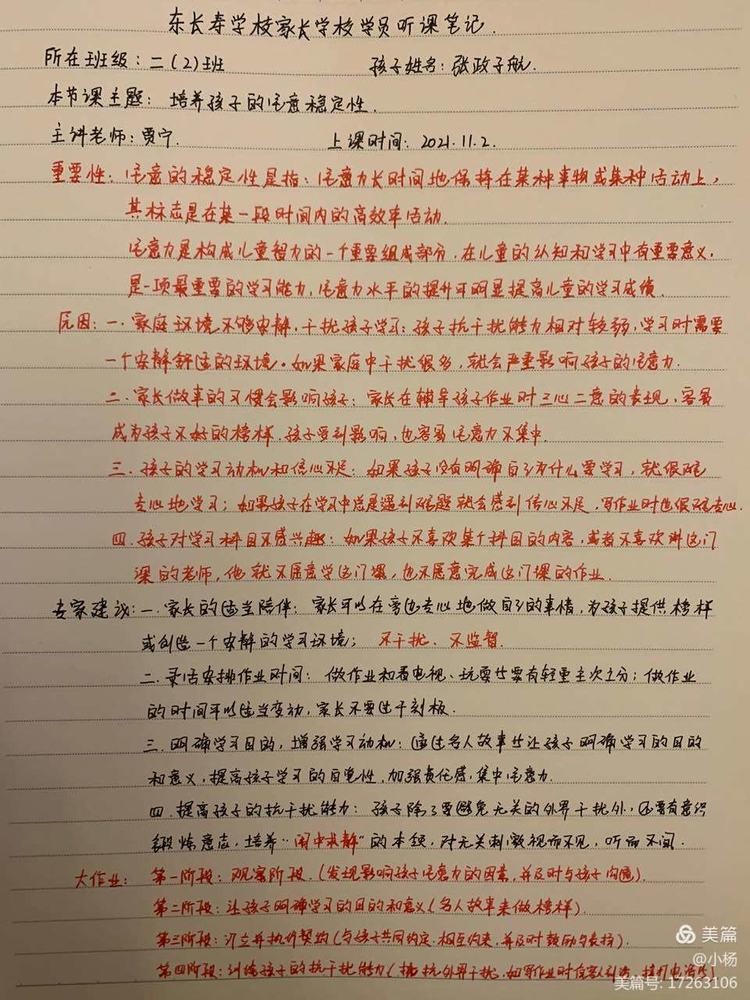 东长寿学校家长学校学员听课笔记.
所在班级:二(2)班 孩子姓名:张政子航.
本节课主题: 培养孩子的注意稳定性.
主讲老师:贾宁. 上课时间: 2021.11.2.
重要性: 注意的稳定性是指: 注意力长时间地保持在某种事物或某种活动上,
其标志是在某一段时间内的高效率活动.
注意力是构成儿童智力的一个重要组成部分,在儿童的认知和学习中有重要意义,
是一项最重要的学习能力,注意力水平的提升可明显提高儿童的学习成绩.
原因:一.家庭环境不够安静,干扰孩子学习:孩子抗干扰能力相对较弱,学习时需要
一个安静舒适的环境。如果家庭中干扰很多,就会严重影响孩子的注意力.
二.家长做事的习惯会影响孩子:家长在辅导孩子作业时三心二意的表现,容易
成为孩子不好的榜样.孩子受到影响,也容易注意力不集中.
三.孩子的学习动机和信心不足:如果孩子没有明确自己为什么要学习,就很难
专心地学习;如果孩子在学习中总是遇到难题就会感到信心不足,写作业时也很难专心.
四.孩子对学习科目不感兴趣:如果孩子不喜欢某个科目的内容,或者不喜欢讲这门
课的老师,他就不愿意学这门课,也不愿意完成这门课的作业.
专家建议:一.家长的适当陪伴: 家长可以在旁边专心地做自己的事情,为孩子提供榜样
或创造一个安静的学习环境; 不干扰、不监督.
二.灵活安排作业时间: 做作业和看电视、玩耍等要有轻重主次之分;做作业
的时间可以适当变动,家长不要过于刻板.
三.明确学习目的,增强学习动机:通过名人故事等让孩子明确学习的目的
和意义,提高孩子学习的自觉性,加强责任感,集中注意力.
四.提高孩子的抗干扰能力: 孩子除了要避免无关的外界干扰外,还要有意识
锻炼意志,培养“闹中求静”的本领,对无关刺激视而不见,听而不闻.
大作业: 第一阶段:观察阶段.(发现影响孩子注意力的因素,并及时与孩子沟通).
第二阶段:让孩子明确学习的目的和意义(名人故事来做榜样).
第三阶段:订立并执行契约(与孩子共同约定,相互约束,并及时鼓励与表扬).
第四阶段:训练孩子的抗干扰能力(抵抗外界干扰,如写作业时
美篇
@小杨
美篇号: 17263106